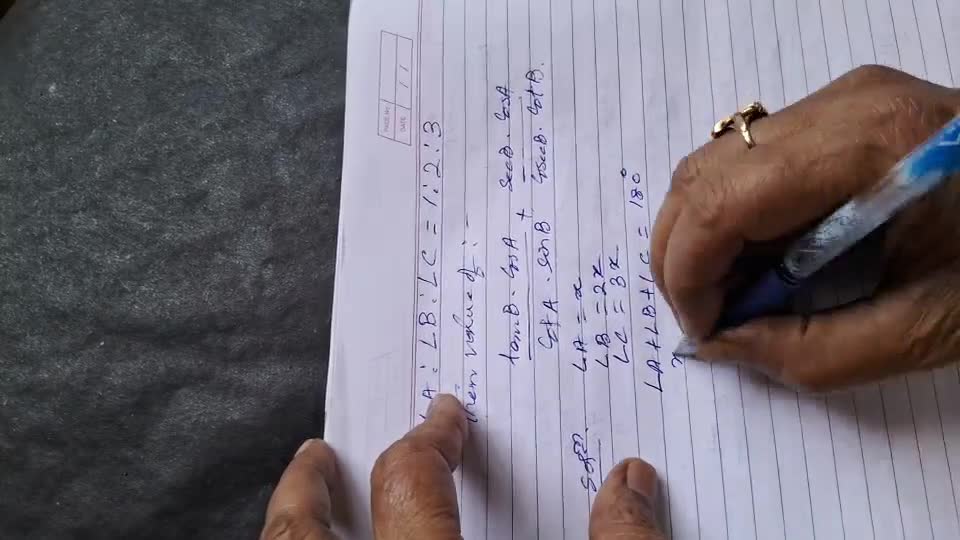 PAGE NO.
DATE
∠A : ∠B : ∠C = 1 : 2 : 3
then value of :-
tanB · CosA / CotA · SinB + SecB · CosA / CosecB · CotB.
Soln ∠A = x
∠B = 2x
∠C = 3x
∠A + ∠B + ∠C = 180°
x